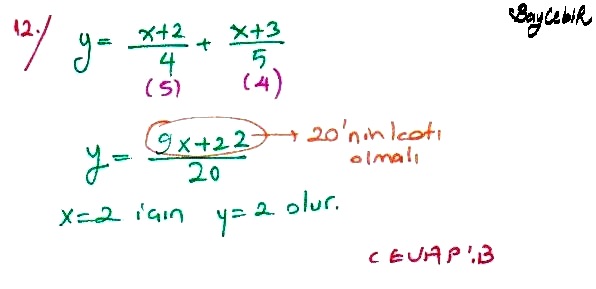 BayCebiR
12.) y = x+2/4 + x+3/5
(5) (4)
y = 9x+22/20 → 20'nin katı
olmalı
x=2 için y=2 olur.
CEVAP:B